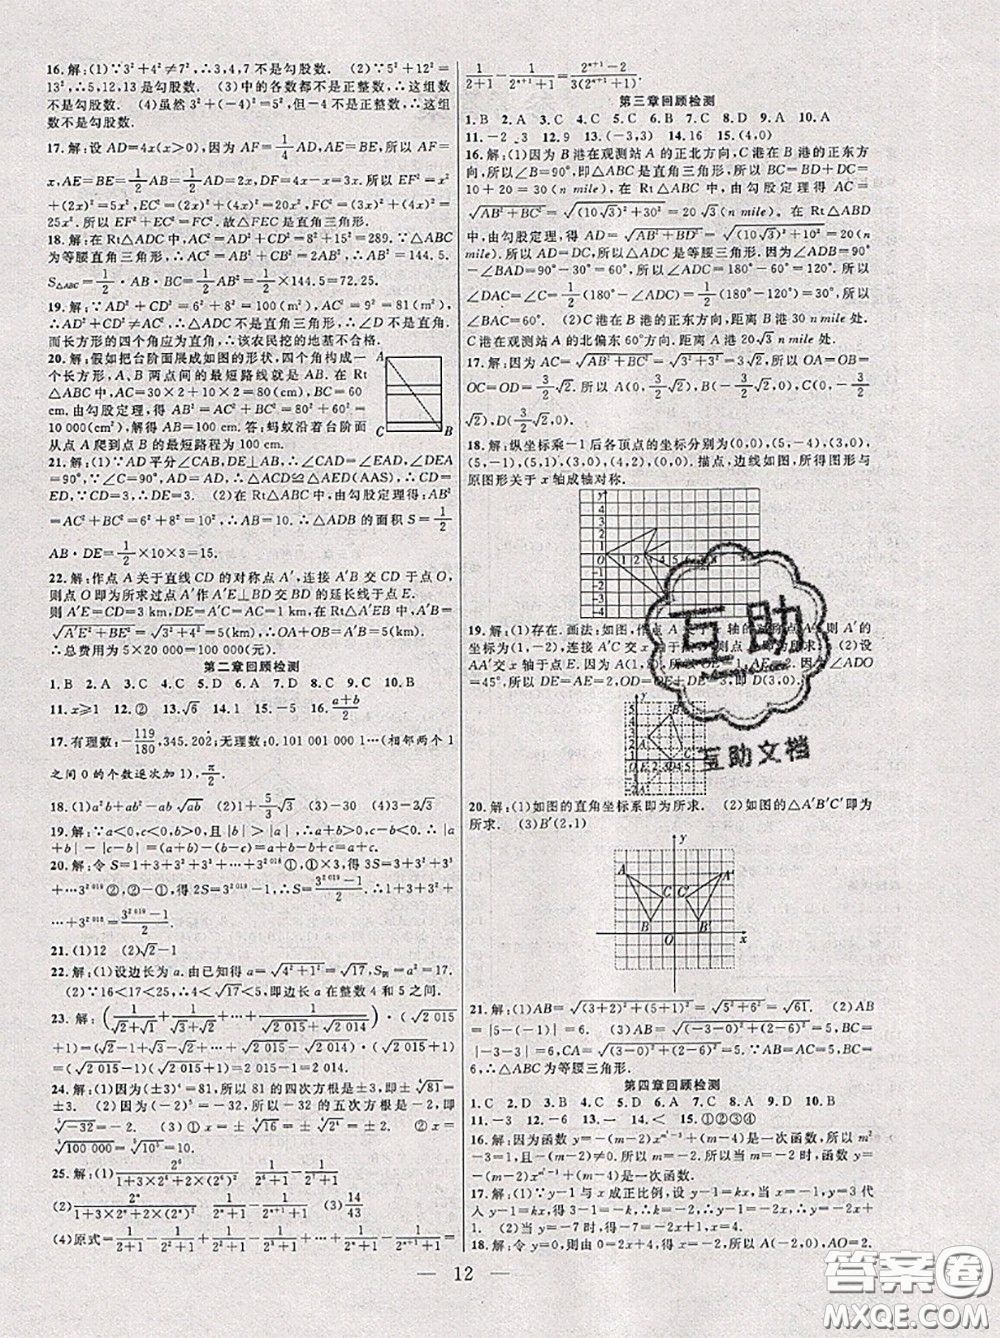 16.解:(1)∵3²+4²≠7²,∴3,4,7不是勾股数. (2)∵5²+12²=
13²,∴5,12,13是勾股数. (3)中的各数都不是正整数,∴这组
数不是勾股数. (4)虽然3²+(-4)²=5²,但-4不是正整数,∴这组
数不是勾股数.
17.解:设AD=4x(x>0),因为AF=1/4AD,AE=BE,所以AF=
x,AE=BE=2x,BC=4x,CD=4x,DF=3x.所以EF²=x²+
(2x)²=5x²,CE²=(4x)²+(2x)²=20x²,FC²=(3x)²+(4x)²=
25x².所以EF²+EC²=FC².故△FEC是直角三角形.
18.解:在Rt△ADC中,AC²=AD²+CD²=8²+15²=289.∵△ABC
为等腰直角三角形,∴AC²=AB²+BC²=2AB²=289,∴AB²=144.5.
S△ABC=1/2·AB·BC=1/2AB²=1/2×144.5=72.25.
19.解:∵AD²+CD²=6²+8²=100(m²),AC²=9²=81(m²),
∴AD²+CD²≠AC²,∴△ADC不是直角三角形,∴∠D不是直角.
而长方形的四个角应为直角,∴该农民挖的地基不合格.
20.解:假如把台阶面展成如图的形状,四个角构成一
个长方形,A,B两点间的最短路线就是AB.在Rt
△ABC中,AC=30×2+10×2=80(cm),BC=60
cm.由勾股定理,得AB²=AC²+BC²=80²+60²=
10 000(cm²),AB=100 cm.答:蚂蚁沿着台阶面
从点A爬到点B的最短路程为100 cm.
A
C
B
21.解:(1)∵AD平分∠CAB,DE⊥AB,∴∠CAD=∠EAD,∠DEA
=90°.∵∠C=90°,AD=AD,∴△ACD≌△AED(AAS),∴CD=
DE.∵CD=3,∴DE=3. (2)在Rt△ABC中,由勾股定理得:AB²=
AC²+BC²=6²+8²=10²,∴AB=10,∴△ADB的面积S=1/2
AB·DE=1/2×10×3=15.
22.解:作点A关于直线CD的对称点A′,连接A′B交CD于点O,
则点O即为所求过点A′作A′E⊥BD交BD的延长线于点E.
则A′E=CD=3 km,DE=A′C=AC=1 km,在Rt△A′EB中,A′B=
√(A′E²+BE²)=√(3²+4²)=5(km),∴OA+OB=OA′+OB=5(km),
∴总费用为5×20 000=100 000(元).
第二章回顾检测
1.B 2.A 3.C 4.C 5.D 6.A 7.D 8.C 9.C 10.B
11.x≥1 12.② 13.√6 14.1 15.-5 16.(a+b)/2
17.有理数:-119/180,345.202;无理数:0.101 001 000 1…(相邻两个1
之间0的个数逐次加1),π/2.
18.(1)a²b+ab²-ab√ab (2)1+5/3√3 (3)-30 (4)3-2√3
19.解:∵a<0,c<0,b>0,且|b|>|a|,∴a+b>0,b-c>0.∴|a
+b|-|b-c|=(a+b)-(b-c)=a+b-b+c=a+c.
20.解:令S=1+3+3²+3³+…+3^2015①,①×3得3S=3+3²+3³
+…+3^2016②,②-①,得2S=3^2016-1,∴S=(3^2016-1)/2,即1+3+3²+…
+3^2015=(3^2016-1)/2.
21.(1)12 (2)√2-1
22.解:(1)设边长为a.由已知得a=√(4²+1²)=√17,S阴=a²=17.
(2)∵16<17<25,∴4<√17<5,即边长a在整数4和5之间.
23.解:(1/(√2+√1)+1/(√3+√2)+…+1/(√2 015+√2 014))·(√2 015
+1)=(√2-1+√3-√2+…+√2 015-√2 014)·(√2 015+1)=
(√2 015-1)(√2 015+1)=2 015-1=2 014.
24.解:(1)因为(±3)⁴=81,所以81的四次方根是±3,即±⁴√81=
±3. (2)因为(-2)⁵=-32,所以-32的五次方根是-2,即
⁵√-32=-2. (3)①±⁴√16=±⁴√2⁴=±2. ②⁵√100 000=⁵√10⁵=10.
25.解:(1)2⁶/(1+3×2⁶+2×(2⁶)²) 1/(2⁶+1)-1/(2⁷+1)
(2)2ⁿ/(1+3×2ⁿ+2×(2ⁿ)²) 1/(2ⁿ+1)-1/(2ⁿ⁺¹+1) (3)14/43
(4)原式=1/(2+1)-1/(2²+1)+1/(2²+1)-1/(2³+1)+…+1/(2ⁿ+1)-1/(2ⁿ⁺¹+1)=
1/(2+1)-1/(2ⁿ⁺¹+1)=(2ⁿ⁺¹-2)/(3(2ⁿ⁺¹+1)).
第三章回顾检测
1.B 2.A 3.C 4.C 5.C 6.B 7.C 8.D 9.A 10.A
11.-2 3 12.9 13.(-3,3) 14.16 15.(4,0)
16.解:(1)因为B港在观测站A的正北方向,C港在B港的正东方
向,所以∠B=90°,即△ABC是直角三角形.所以BC=BD+DC=
10+20=30(n mile).在Rt△ABC中,由勾股定理得AC=
√(AB²+BC²)=√((10√3)²+30²)=20√3(n mile).在Rt△ABD
中,由勾股定理,得AD=√(AB²+BD²)=√((10√3)²+10²)=20(n
mile).所以AD=DC,所以△ADC是等腰三角形.因为∠BDA=90°
-∠BAD=90°-30°=60°,所以∠ADC=180°-60°=120°,所以
∠DAC=∠C=1/2(180°-∠ADC)=1/2(180°-120°)=30°=
∠BAC. (2)C港在B港的正东方向,距离B港30 n mile处.
C港在观测站A的北偏东60°方向,距离A港20√3 n mile处.
17.解:因为AC=√(AB²+BC²)=√(3²+3²)=3√2,所以OA=OB=
OC=OD=3/2√2.所以A(3/2√2,0),B(0,3/2√2),C(-3/2
√2),D(3/2√2,0).
18.解:纵坐标乘-1后各顶点的坐标分别为(0,0),(5,-4),(3,0),
(5,-1),(5,1),(3,0),(4,2),(0,0).描点,边线如图,所得图形与
原图形关于x轴成轴对称.
19.解:(1)存在.画法:如图,作点A关于x轴的对称点A′,则A′的
坐标为(1,-2),连接A′B交x轴于点D,则点D即为所求; (2)设
AA′交x轴于点E.因为A(1,2),所以OE=1,AE=2.因为∠ADO
=45°,所以DE=AE=2,所以OD=OE+DE=3,即D(3,0).
20.解:(1)如图的直角坐标系即为所求. (2)如图的△A′B′C′即为
所求. (3)B′(2,1)
21.解:(1)AB=√((3+2)²+(5+1)²)=√(5²+6²)=√61. (2)AB
=|5-(-1)|=6. (3)AB=√((-3-0)²+(2-6)²)=5,BC=
|-3-3|=6,CA=√((3-0)²+(2-6)²)=5.∵AB=5,CA=5,BC=
6,∴△ABC为等腰三角形.
第四章回顾检测
1.C 2.B 3.D 4.C 5.D 6.A 7.D 8.A 9.D 10.B
11.-3 12.-6 13.一 14.< 15.①②③④
16.解:因为函数y=-(m-2)x^(m²-3)+(m-4)是一次函数,所以m²
-3=1,且-(m-2)≠0,所以m=±2且m≠2,所以当m=-2时,函数y
=-(m-2)x^(m²-3)+(m-4)是一次函数.
17.解:(1)∵y-1与x成正比例,设y-1=kx,当x=-2时,y=3代
入y-1=kx,得3-1=-2k,解得k=-1,则y-1=-x,y=-x
+1. (2)当y=-7时,得-7=-x+1,解得x=8.
18.解:令y=0,则x=-2.所以A(-2,0).
12
互助
互助文档
答案圈
MXQE.COM